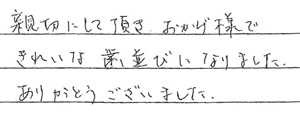 親切にして頂き おかげ様で
きれいな歯並びになりました.
ありがとうございました.